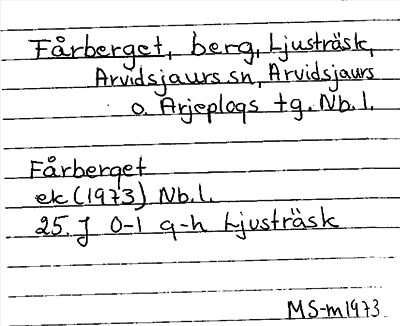 Fårberget, berg, Ljusträsk,
Arvidsjaurs sn, Arvidsjaurs
o. Arjeplogs tg. Nb. l.
Fårberget
ek (1973) Nb. l.
25. J 0-1 g-h Ljusträsk
MS-m1973